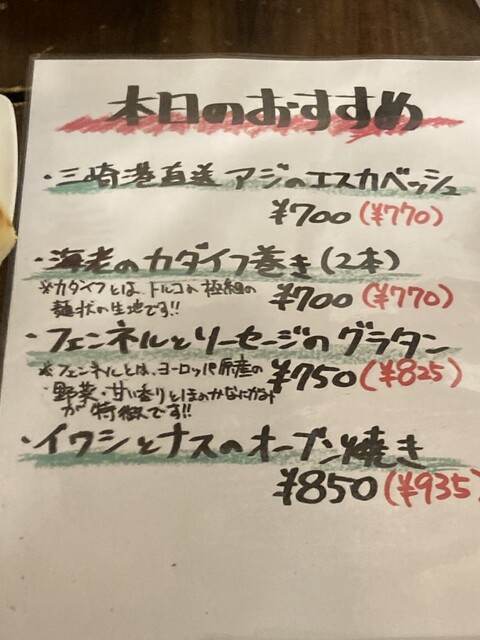 本日のおすすめ
・三崎港直送 アジのエスカベッシュ
¥700(¥770)
・海老のカダイフ巻き(2本)
※カダイフとは、トルコの極細の
麺状の生地です!!
¥700(¥770)
・フェンネルとソーセージのグラタン
※フェンネルとは、ヨーロッパ原産の
野菜・甘い香りとほのかなにがみ
が特徴です!!
¥750(¥825)
・イワシとナスのオーブン焼き
¥850(¥935)